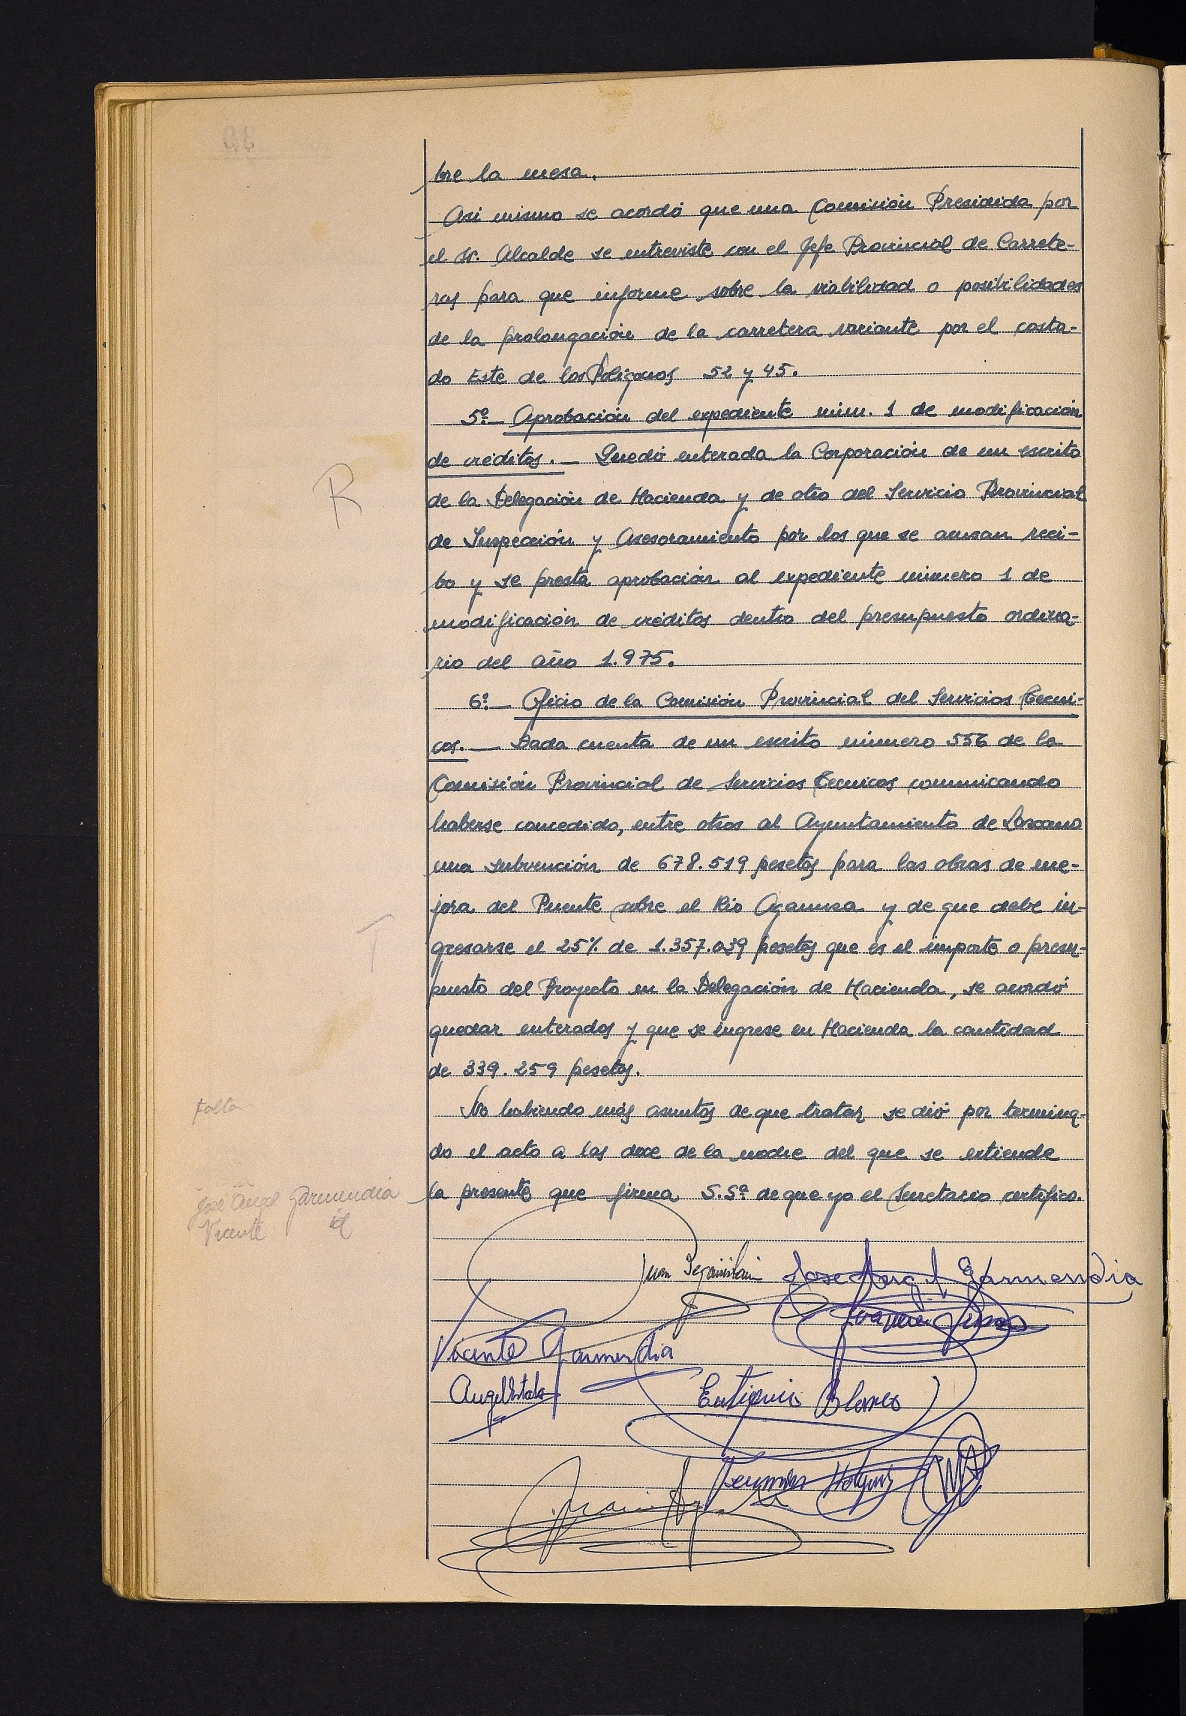 bre la mesa.
Asi mismo se acordó que una Comisión Presidida por
el Sr. Alcalde se entreviste con el Jefe Provincial de Carrete-
ras para que informe sobre la viabilidad o posibilidades
de la prolongación de la carretera variante por el costa-
do Este de los Poligonos 52 y 45.
5º.- Aprobación del expediente núm. 1 de modificación
de créditos.- Quedó enterada la Corporación de un escrito
R
de la Delegación de Hacienda y de otro del Servicio Provincial
de Inspección y Asesoramiento por los que se acusan reci-
bo y se presta aprobación al expediente número 1 de
modificación de créditos dentro del presupuesto ordina-
rio del año 1.975.
6º.- Oficio de la Comisión Provincial del Servicios Tecni-
cos.- Dada cuenta de un escrito número 556 de la
Comisión Provincial de Servicios Tecnicos comunicando
haberse concedido, entre otros al Ayuntamiento de Lazcano
una subvención de 678.519 pesetas para las obras de me-
jora del Puente sobre el Rio Agaunza y de que debe in-
T
gresarse el 25% de 1.357.039 pesetas que es el importe o presu-
puesto del Proyecto en la Delegación de Hacienda, se acordó
quedar enterados y que se ingrese en Hacienda la cantidad
de 339.259 pesetas.
falta
No habiendo más asuntos de que tratar se dió por termina-
do el acto a las doce de la noche del que se extiende
la presente que firma S.Sª. de que yo el Secretario certifico.
José Angel Garmendia
Vicente id
Juan
Jose Angel Garmendia
Vicente Garmendia
Angel
Eutiquio Blanco